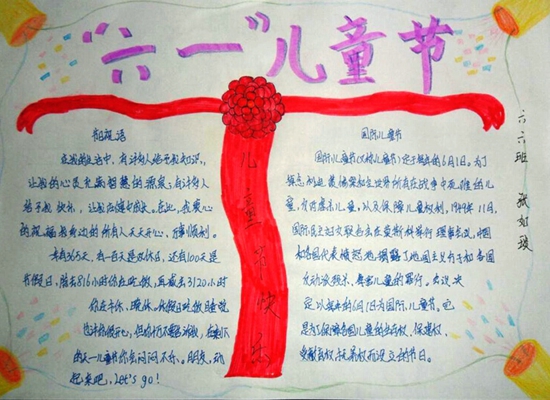 “六一”儿童节
祝福语
在我的生活中,有许多人给予我知识,
让我的心灵充满智慧的源泉;有许多人
给予我快乐,让我
的祝福
身边的所有人天天开心,万事顺利。
去有365天,有一百天是双休日,还有100天是
节假日,除去816小时你在吃饭,再减去3120小时
你在午休、晚休,
的六一儿童节你
不乐。朋友,
起来吧,Let's go!
儿童节快乐
国际儿童节
国际儿童节(又称儿童节)定于每年的6月1日。为了
悼念利迪策惨案和全世界所有在战争中死难的儿
童,反对虐杀儿童,以及保障儿童权利,1949年11月,
国际民主妇女联合会在莫斯科举行理事会议,中国
和各国代表愤怒地揭露了帝国主义分子和各国
反动派残杀、毒害儿童的罪行。会议决
定以每年的6月1日为国际儿童节。它
是为了保障各国儿童的生存权、保健权、
受教育权、抚养权而设立的节日。
六六班
张如